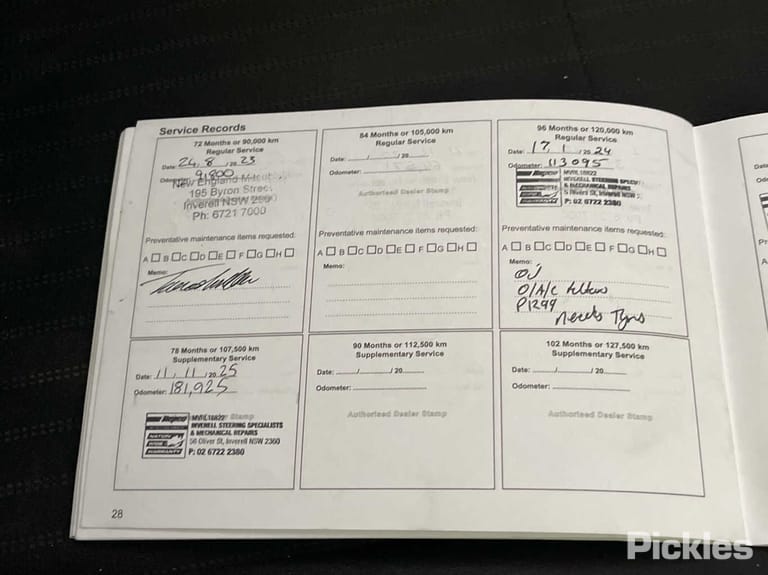 Service Records
72 Months or 90,000 km
Regular Service
Date: 24, 8 / 20 23
Odometer: 91800
New England
195 Byron Street
Inverell NSW 2360
Ph: 6721 7000
Preventative maintenance items requested:
A B C D E F G H
Memo:
84 Months or 105,000 km
Regular Service
Date: / / 20
Odometer:
Authorised Dealer Stamp
Preventative maintenance items requested:
A B C D E F G H
Memo:
96 Months or 120,000 km
Regular Service
Date: 17, 1 / 20 24
Odometer: 113095
Repco MVRL18822
INVERELL STEERING SPECI
& MECHANICAL REPAIRS
Rivers St, Inverell NSW
P: 02 6722 2380
Preventative maintenance items requested:
A B C D E F G H
Memo:
O/A/C
P1299
needs Tyres
78 Months or 107,500 km
Supplementary Service
Date: 11, 11 / 20 25
Odometer: 181,925
Stamp
Repco
INVERELL STEERING SPECIALISTS
& MECHANICAL REPAIRS
56 Oliver St, Inverell NSW 2360
NATION WIDE WARRANTY
P: 02 6722 2380
90 Months or 112,500 km
Supplementary Service
Date: / / 20
Odometer:
Authorised Dealer Stamp
102 Months or 127,500 km
Supplementary Service
Date: / / 20
Odometer:
Authorised Dealer Stamp
28
Pickles